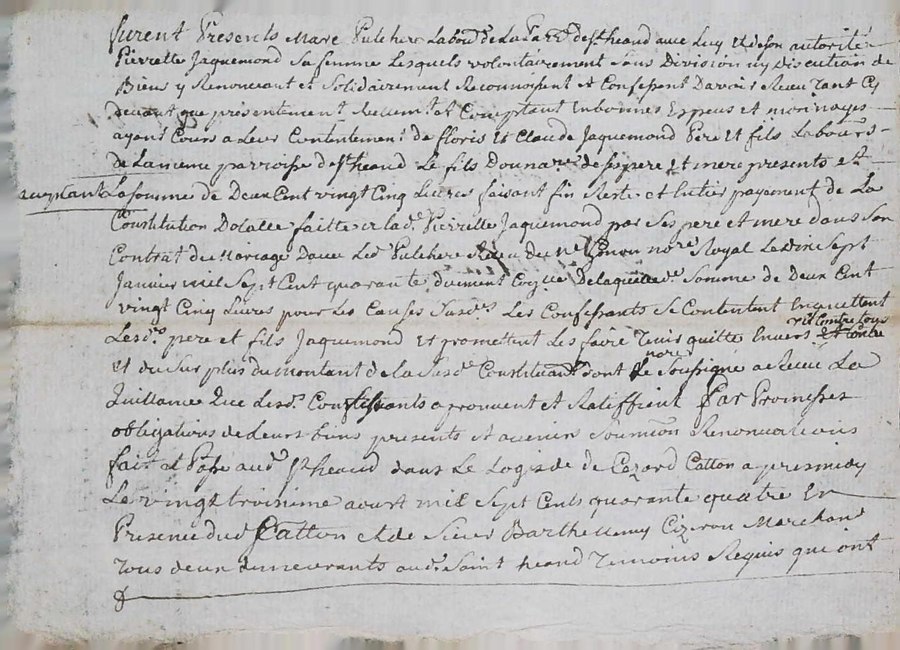 furent Presents Marc Pulchere Labour de La Parr. de st heand avec luy et de son autorité
Pierrette Jaquemond Sa femme Lesquels volontairement sans Division ny discution de
Biens y Renonceant et Solidairement Reconnoissent et Confessent D'avoir Receu Tant Cy
devant que présentement Recemt. et Comptant En bonnes Especes et monnoyes
ayant Cours a Leur Contentement de floris et Claude Jaquemond Pere et fils Labours
de La meme parroisse de st heand Le fils Donnare. de ses pere et mere presents et
acceptants La somme de Deux Cent vingt Cinq Livres faisant fin Reste et Entier payement de La
Constitution Dotalle faitte a lad. Pierrette Jaquemond par Ses pere et mere dans Son
Contrat de Mariage Davec Led. Pulchere Receu du me nore. Royal Le Sept
Janvier mil Sept Cent quarante dument De laquelle de. Somme de Deux Cent
vingt Cinq Livres pour Les Causes Susd. Les Confessants Se Contentent En quittent
Lesd. pere et fils Jaquemond Et promettent Les faire Tenir quitte Envers et Contre tous
Et du Sur plus du montant de la Susd. Constituaon. dont Le nore Soussigné a Receu La
Quittance Que Lesd. Confessants aprouvent et Ratiffient Par Promesses
obligations de Leurs biens presents et avenir Soumion Renonciations
fait et Passé aud. St heand dans Le Logis de de Cezard Catton apres midy
Le vingt troisieme aoust mil Sept Cents quarante quatre En
Presence dud Catton et de Sieur Barthellemy Cizeron Marchand
Tous deux demeurants aud. Saint heand Temoins Requis qui ont